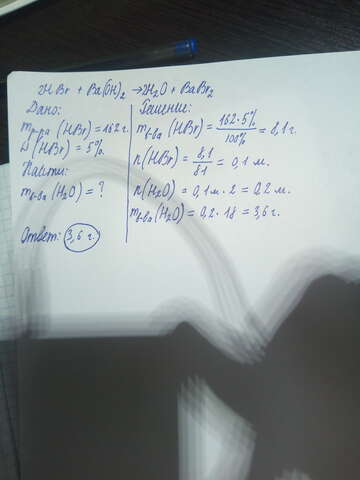 2HBr + Ba(OH)2 → 2H2O + BaBr2
Дано:
mр-ра (HBr) = 162 г.
W (HBr) = 5%.
Найти:
mв-ва (H2O) = ?
Ответ: 3,6 г.
Решение:
mв-ва (HBr) = 162·5% / 100% = 8,1 г.
n(HBr) = 8,1 / 81 = 0,1 м.
n(H2O) = 0,1 м · 2 = 0,2 м.
mв-ва (H2O) = 0,2 · 18 = 3,6 г.